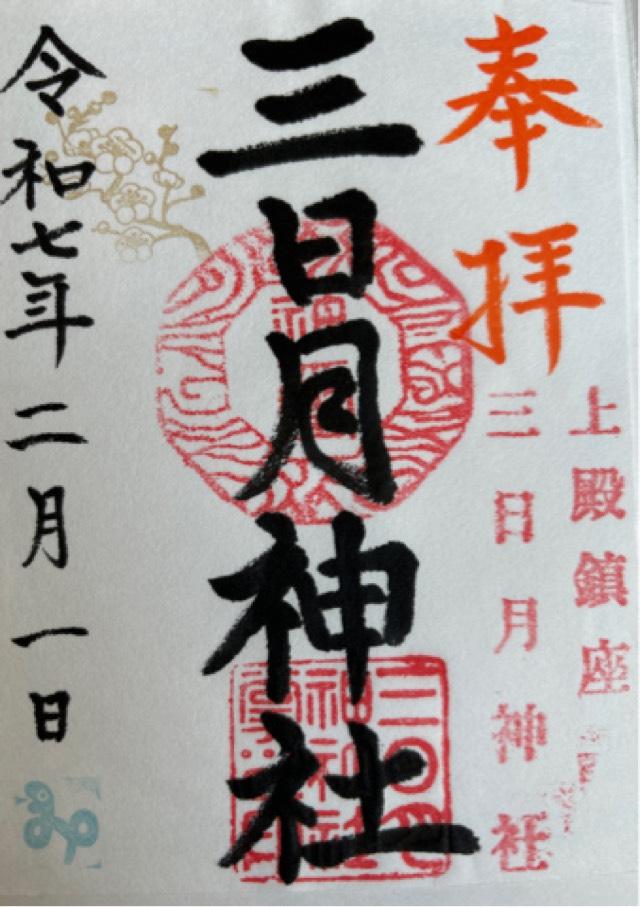 奉拝
上殿鎮座
三日月神社
三日月神社
令和七年二月一日